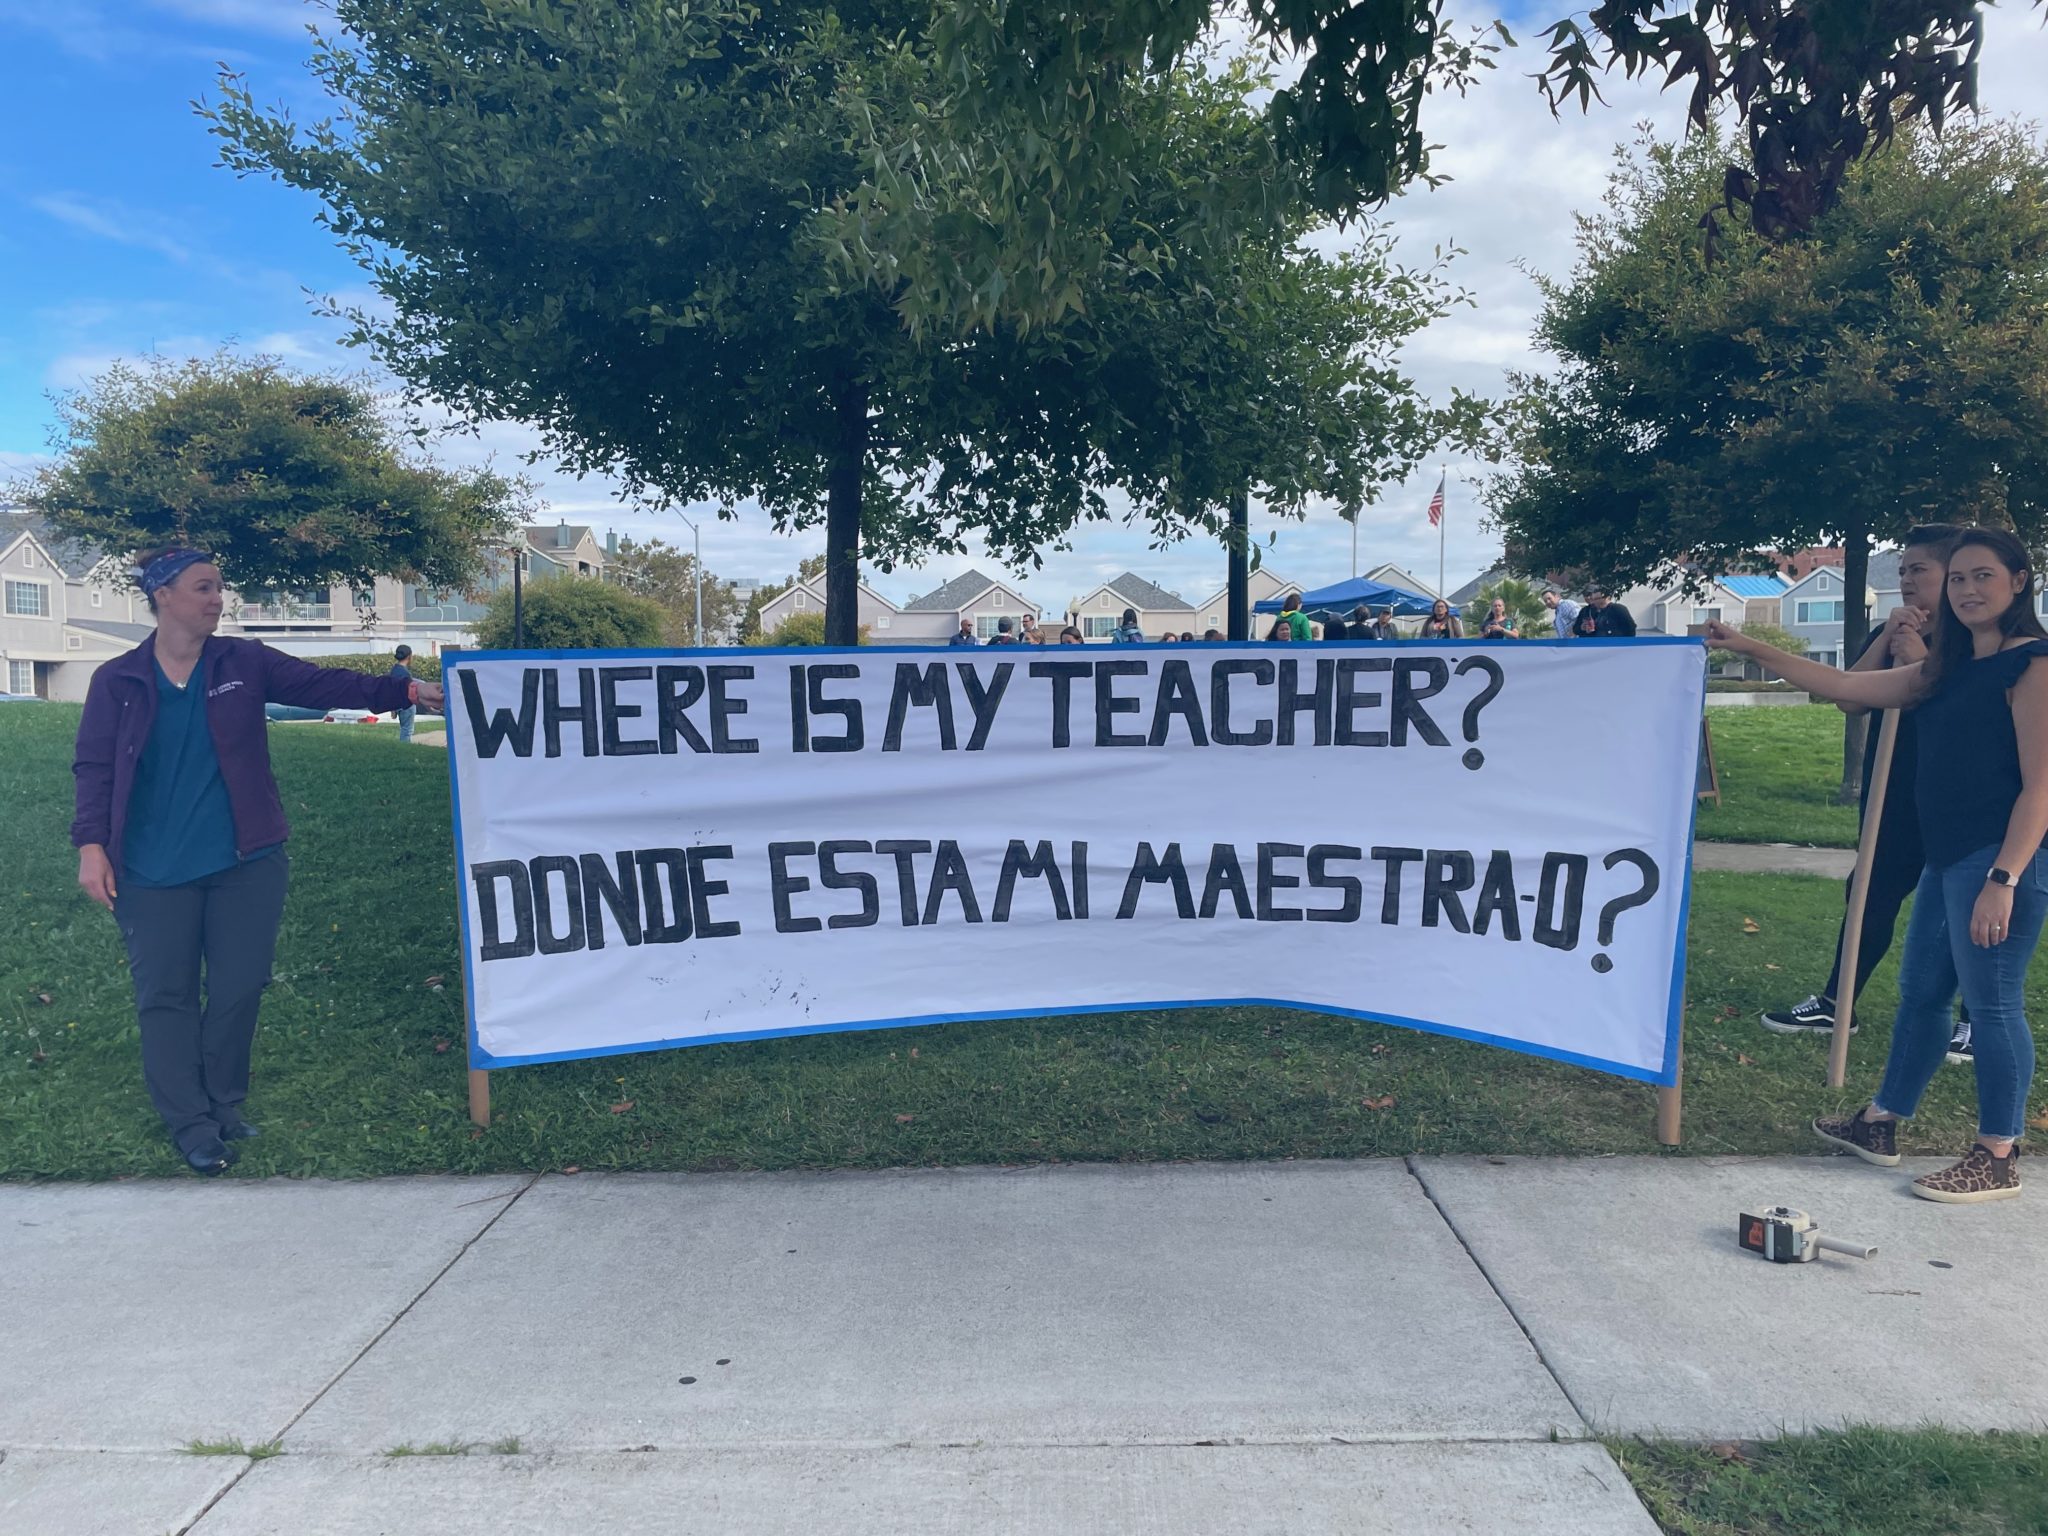 WHERE IS MY TEACHER?
DONDE ESTA MI MAESTRA-O?